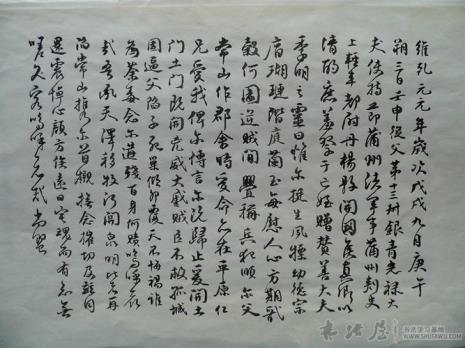 維乾元元年歲次戊戌九月庚午
朔三日壬申從父第十三叔銀青光祿大
夫使持節蒲州諸軍事蒲州刺史
上輕車都尉丹楊縣開國侯真卿以
清酌庶羞祭于亡姪贈贊善大夫
季明之靈曰惟爾挺生夙標幼德宗
廟瑚璉階庭蘭玉每慰人心方期戩
穀何圖逆賊間釁稱兵犯順爾父
常山作郡余時受命亦在平原仁
兄愛我俾爾傳言爾既歸止爰開土
門土門既開凶威大蹙賊臣不救孤城
圍逼父陷子死巢傾卵覆天不悔禍誰
為荼毒念爾遘殘百身何贖嗚呼哀
哉吾承天澤移牧河關泉明比者再
陷常山攜爾首櫬撫念摧切及茲同
還震悼心顏方俟遠日宅魂而有知無
嗟久客嗚呼哀哉尚饗
书法屋
书法学习基地
WWW.SHUFAWU.COM